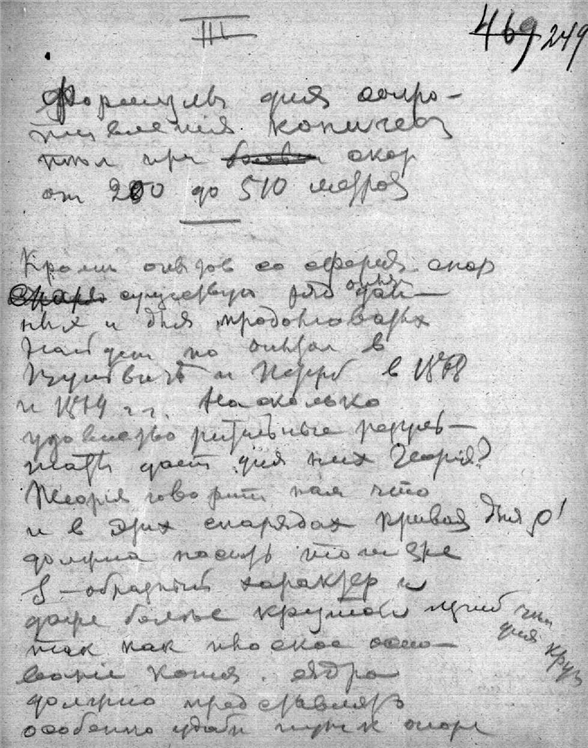 III
469 249
Формулы для сопро-
тивления коничес
тел при скор
от 200 до 510 метров
Кроме опытов со сферич. скор
существуют ряд опыт дан-
ных и для продолговатых
найден по опытам в
и Петерб в 1868
и 1874 г.г. Насколько
удовлетворительные резуль-
таты дает для них теория?
Теория говорит нам что
и в этих снарядах кривая для ρ'
должна носить тот же
S-образный характер и
даже более крутой изгиб чем
для круг
так как плоское осно-
вание конич. ядра
должно представлять
особенно удобн